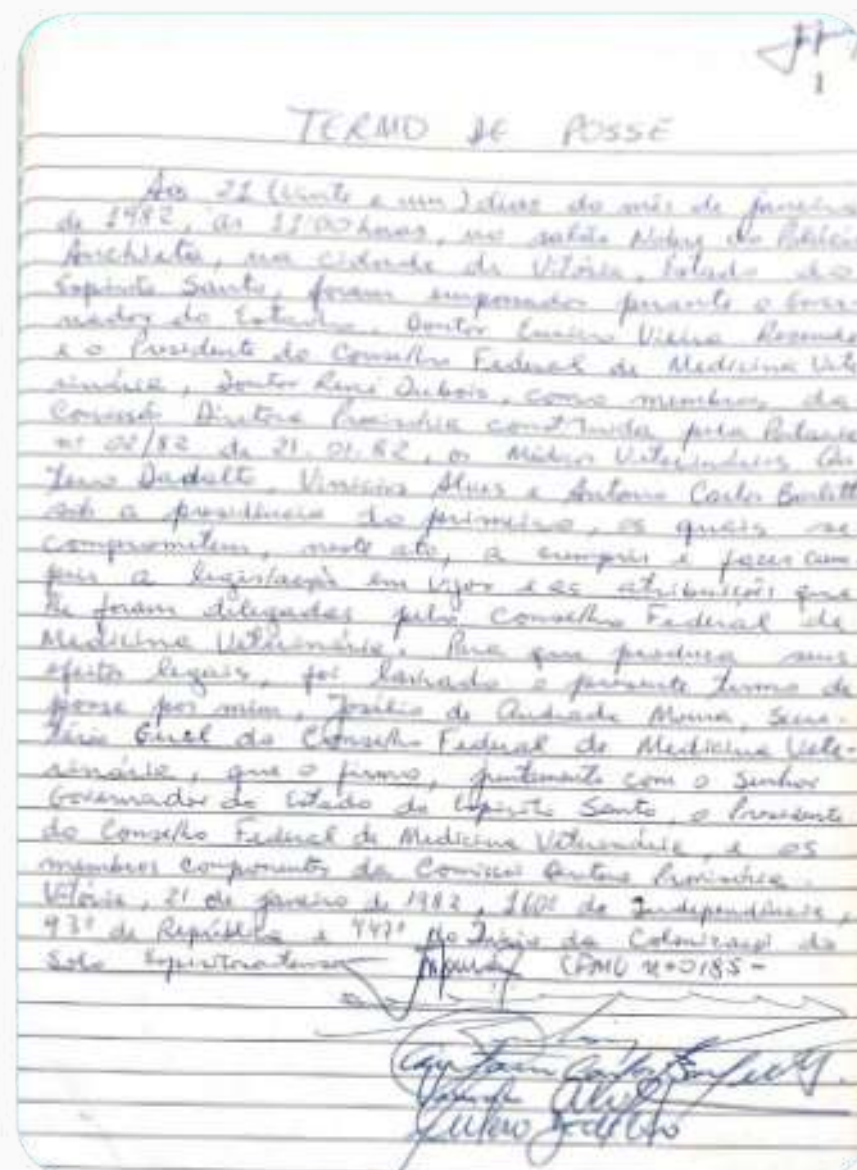 1
TERMO DE POSSE
Aos 21 (vinte e um) dias do mês de janeiro
de 1982, às 11:00 horas, no salão Nobre do Palácio
Anchieta, na cidade de Vitória, Estado do
Espírito Santo, foram empossados perante o Gover-
nador do Estado, Doutor Eurico Vieira Rezende
e o Presidente do Conselho Federal de Medicina Vete
rinária, Doutor René Dubois, como membros da
Comissão Diretora Provisória constituida pela Portaria
nº 02/82 de 21.01.82, os Médicos Veterinários
Dadalto, Vinicius Alves e Antonio Carlos
sob a presidência do primeiro, os quais se
comprometem, neste ato, a cumprir e fazer cum
prir a legislação em vigor e as atribuições que
lhe foram delegadas pelo Conselho Federal de
Medicina Veterinária. Para que produza seus
efeitos legais, foi lavrado o presente termo de
posse por mim, Josélio de Andrade Moura, Secre-
tário Geral do Conselho Federal de Medicina Vete-
rinária, que o firmo, juntamente com o Senhor
Governador do Estado do Espírito Santo, o Presidente
do Conselho Federal de Medicina Veterinária, e os
membros componentes da Comissão Diretora Provisória.
Vitória, 21 de janeiro de 1982, 160º da Independência,
93º da República e 447º do Início da Colonização do
Solo Espiritossantense
CFMV nº 0185 -